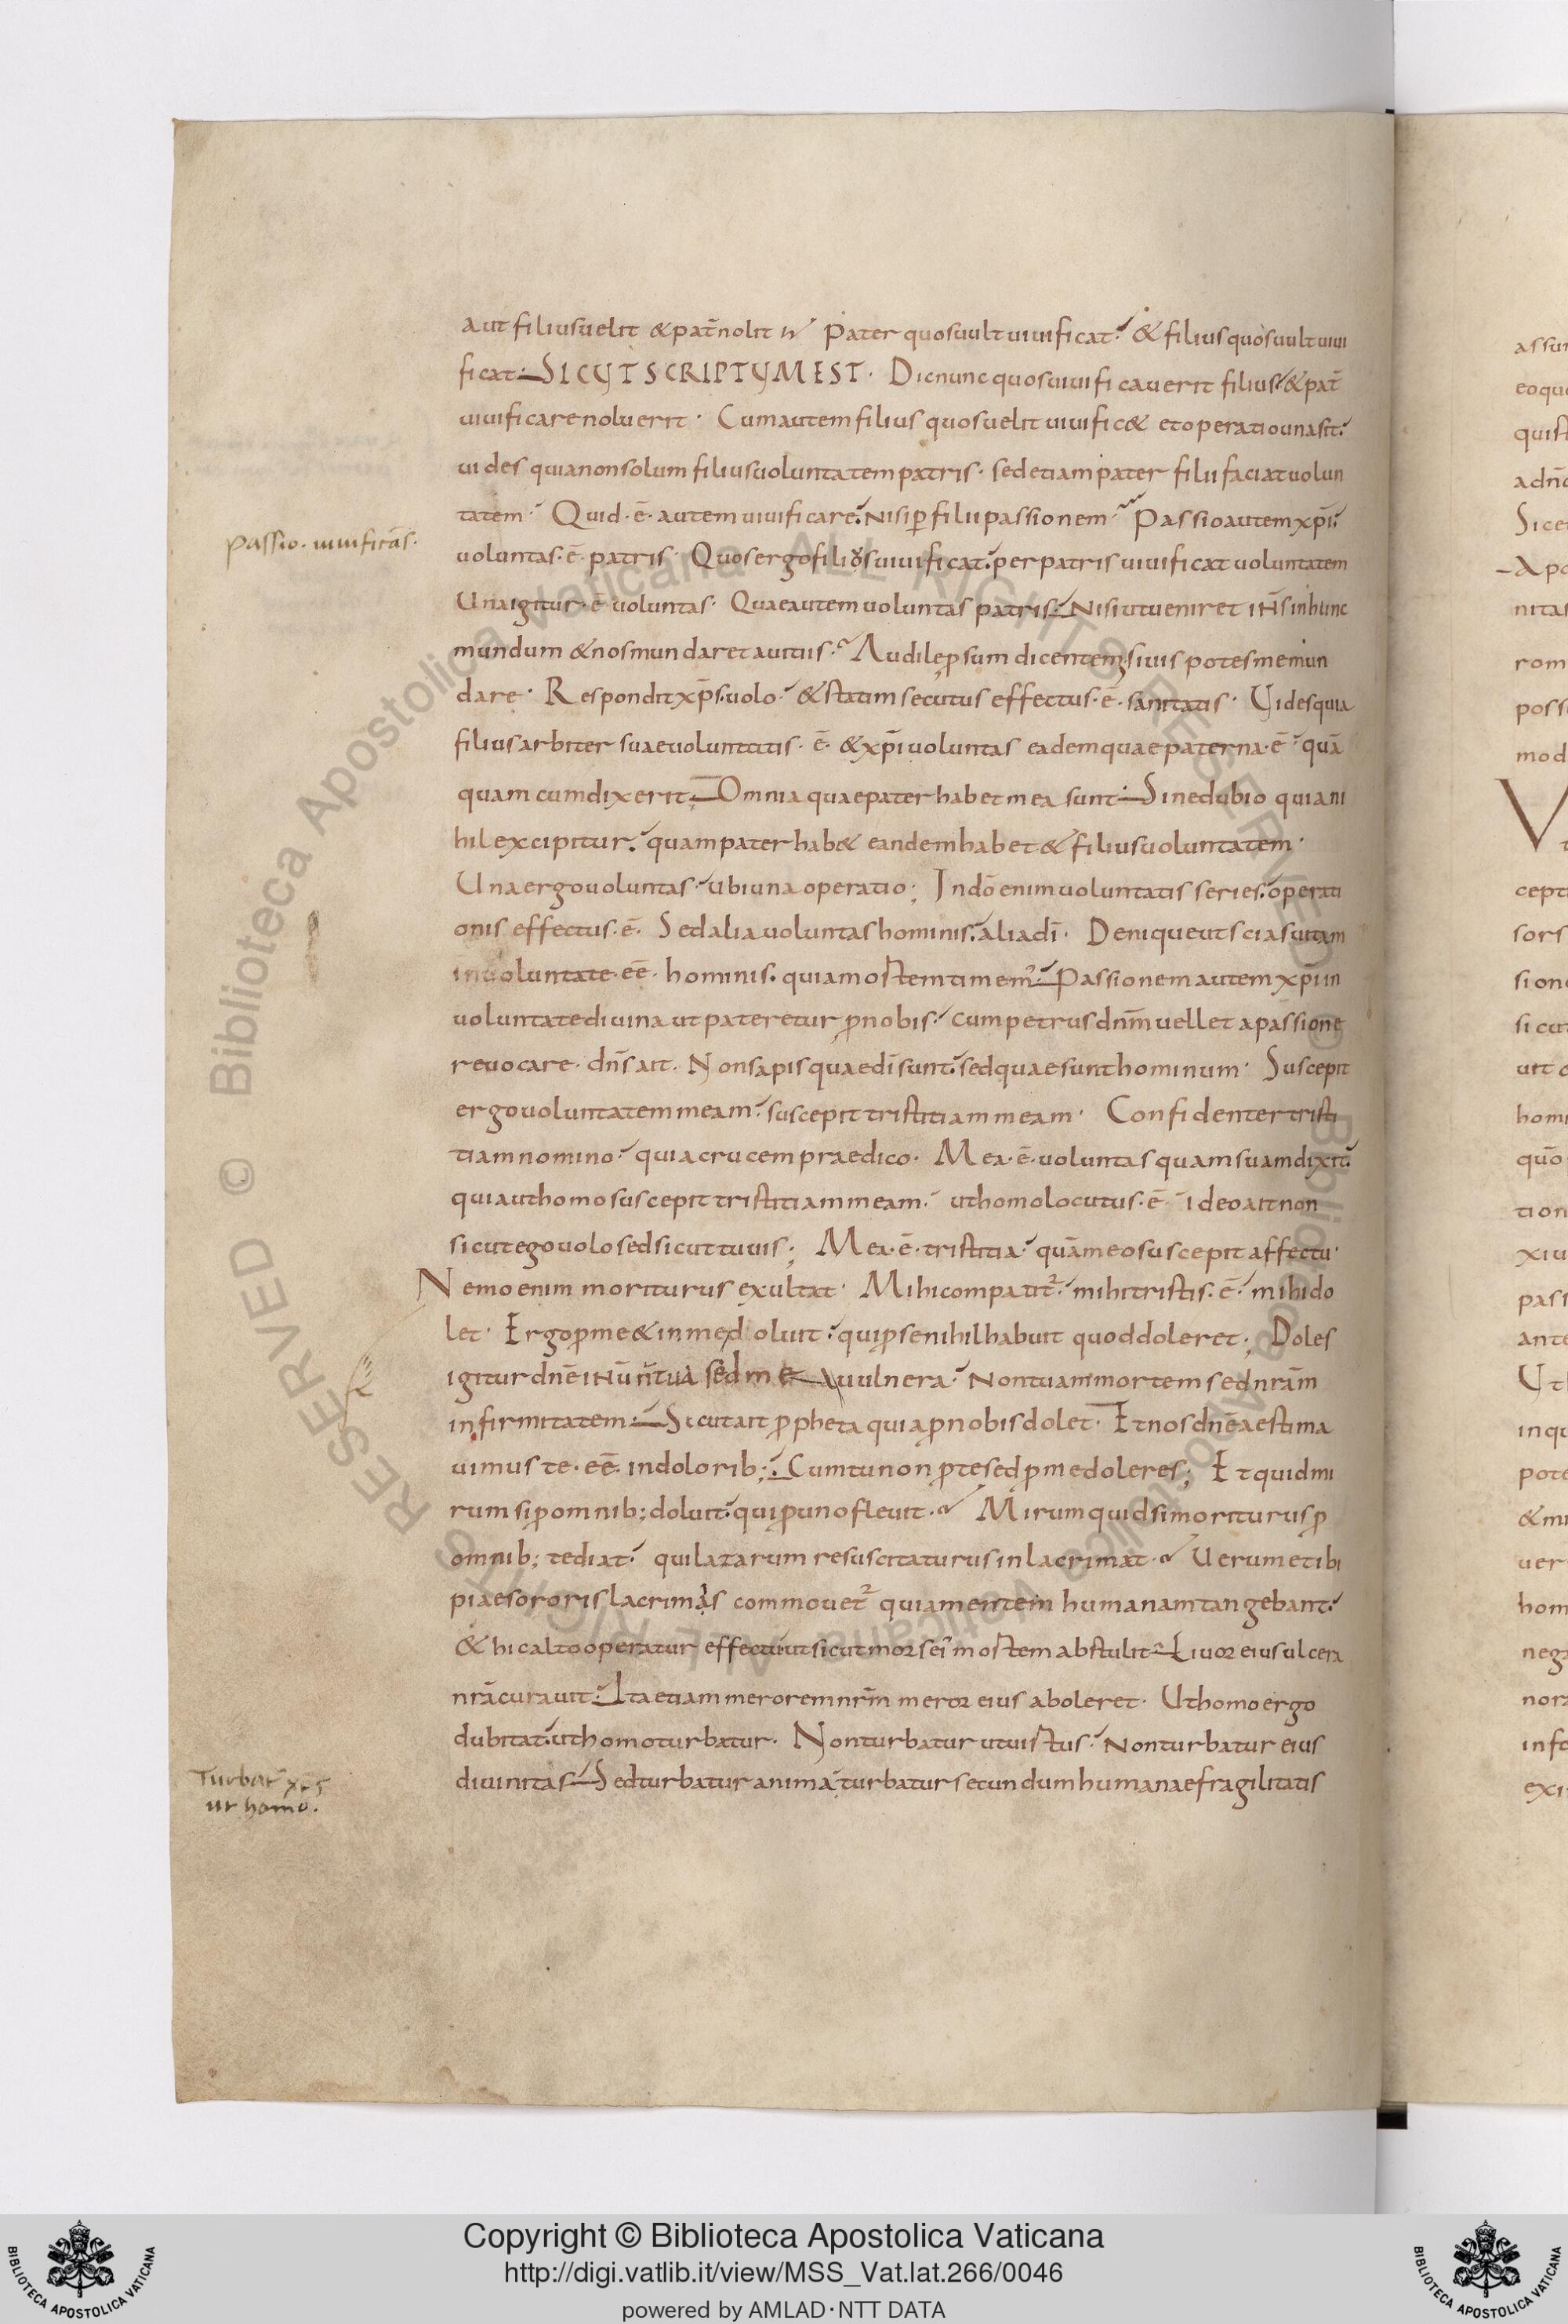 aut filius uelit &pat̄ nolit Pater quos uult uiuificat. & filius quos uult uiui
ficat. SICUT SCRIPTUM EST. Dic nunc quos uiuificauerit filius. & pat̄
uiuificare noluerit. Cum autem filius quos uelit uiuific& et operatio una sit.
uides quia non solum filius uoluntatem patris. sed etiam pater filii faciat uolun
tatem. Quid .ē. autem uiuificare. Nisi ꝑ filii passionem. Passio autem xp̄i.
passio. uiuificās.
uoluntas .ē. patris. Quos ergo filius uiuificat. per patris uiuificat uoluntatem
Una igitur .ē. uoluntas. Quae autem uoluntas patris. Nisi ut ueniret iħs in hunc
mundum & nos mundaret a uitiis. Audi lep̄sum dicentem. si uis potes me mun
dare. Respondit xp̄s. uolo. & statim secutus effectus .ē. sanitatis. Uides quia
filius arbiter suae uoluntatis .ē. & xp̄i uoluntas eadem quae paterna .ē. quā
quam cum dixerit. Omnia quae pater habet mea sunt. Sine dubio quia ni
hil excipitur. quam pater hab& eandem habet & filius uoluntatem.
Una ergo uoluntas. ubi una operatio; In dō enim uoluntatis series. operati
onis effectus .ē. Sed alia uoluntas hominis. alia dī. Denique ut scias uitam
in uoluntate .ēē. hominis. quia mostem timem̄. Passionem autem xp̄i in
uoluntate diuina ut pateretur ꝓ nobis. cum petrus dn̄m uellet a passione
reuocare. dn̄s ait. Non sapis quae dī sunt. sed quae sunt hominum. Suscepit
ergo uoluntatem meam. suscepit tristitiam meam. Confidenter tristi
tiam nomino. quia crucem praedico. Mea .ē. uoluntas quam suam dixit.
qui aut homo suscepit tristitiam meam. ut homo locutus .ē. ideo ait non
sicut ego uolo sed sicut tu uis; Mea .ē. tristitia. quā meo suscepit affectu.
Nemo enim moriturus exultat. Mihi compatit̄. mihi tristis .ē. mihi do
let. Ergo ꝓ me & in me doluit. qui ꝓ se nihil habuit quod doleret; Doles
igitur dn̄e iħū n̄ tua sed mea uulnera. Non tuam mortem sed nr̄am
infirmitatem. Sicut ait ꝓpheta quia ꝓ nobis dolet. Et nos dn̄e aestima
uimus te .ēē. in dolorib; Cum tu non ꝓ te sed ꝓ me doleres; Et quid mi
rum si ꝓ omnib; doluit. qui ꝓ uno fleuit. Mirum quid si moriturus ꝓ
omnib; tediat. qui lazarum resuscitaturus inlacrimat. Uerum et ibi
piae sororis lacrimas commouet̄ quia mentem humanam tangebant.
& hic alto operatur effectu ut sicut mors ei' mostem abstulit. Liuor eius ulcera
nr̄a curauit. Ita etiam merorem nr̄m meror eius aboleret. Ut homo ergo
dubitat. ut homo turbatur. Non turbatur uirtus. Non turbatur eius
diuinitas. Sed turbatur anima. turbatur secundum humanae fragilitatis
Turbat̄ xp̄s
ut homo.
Copyright © Biblioteca Apostolica Vaticana
http://digi.vatlib.it/view/MSS_Vat.lat.266/0046
powered by AMLAD·NTT DATA
BIBLIOTECA APOSTOLICA VATICANA
BIBLIOTECA APOSTOLICA VATICANA